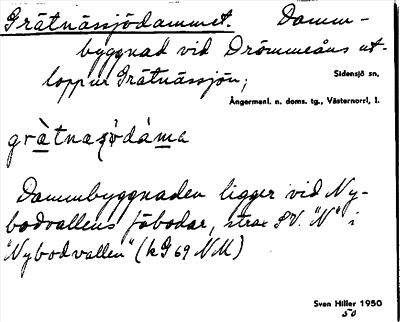 Gråtnässjödammet. Damm-
byggnad vid Drömmeåns ut-
lopp ur Gråtnässjön;
Sidensjö sn,
Ångermanl. n. doms. tg., Västernorrl, l.
Dammbyggnaden ligger vid Ny-
bodvallens fäbodar, strax SV. "N" i
"Nybodvallen" (kG 69 NM)
Sven Hiller 1950
50